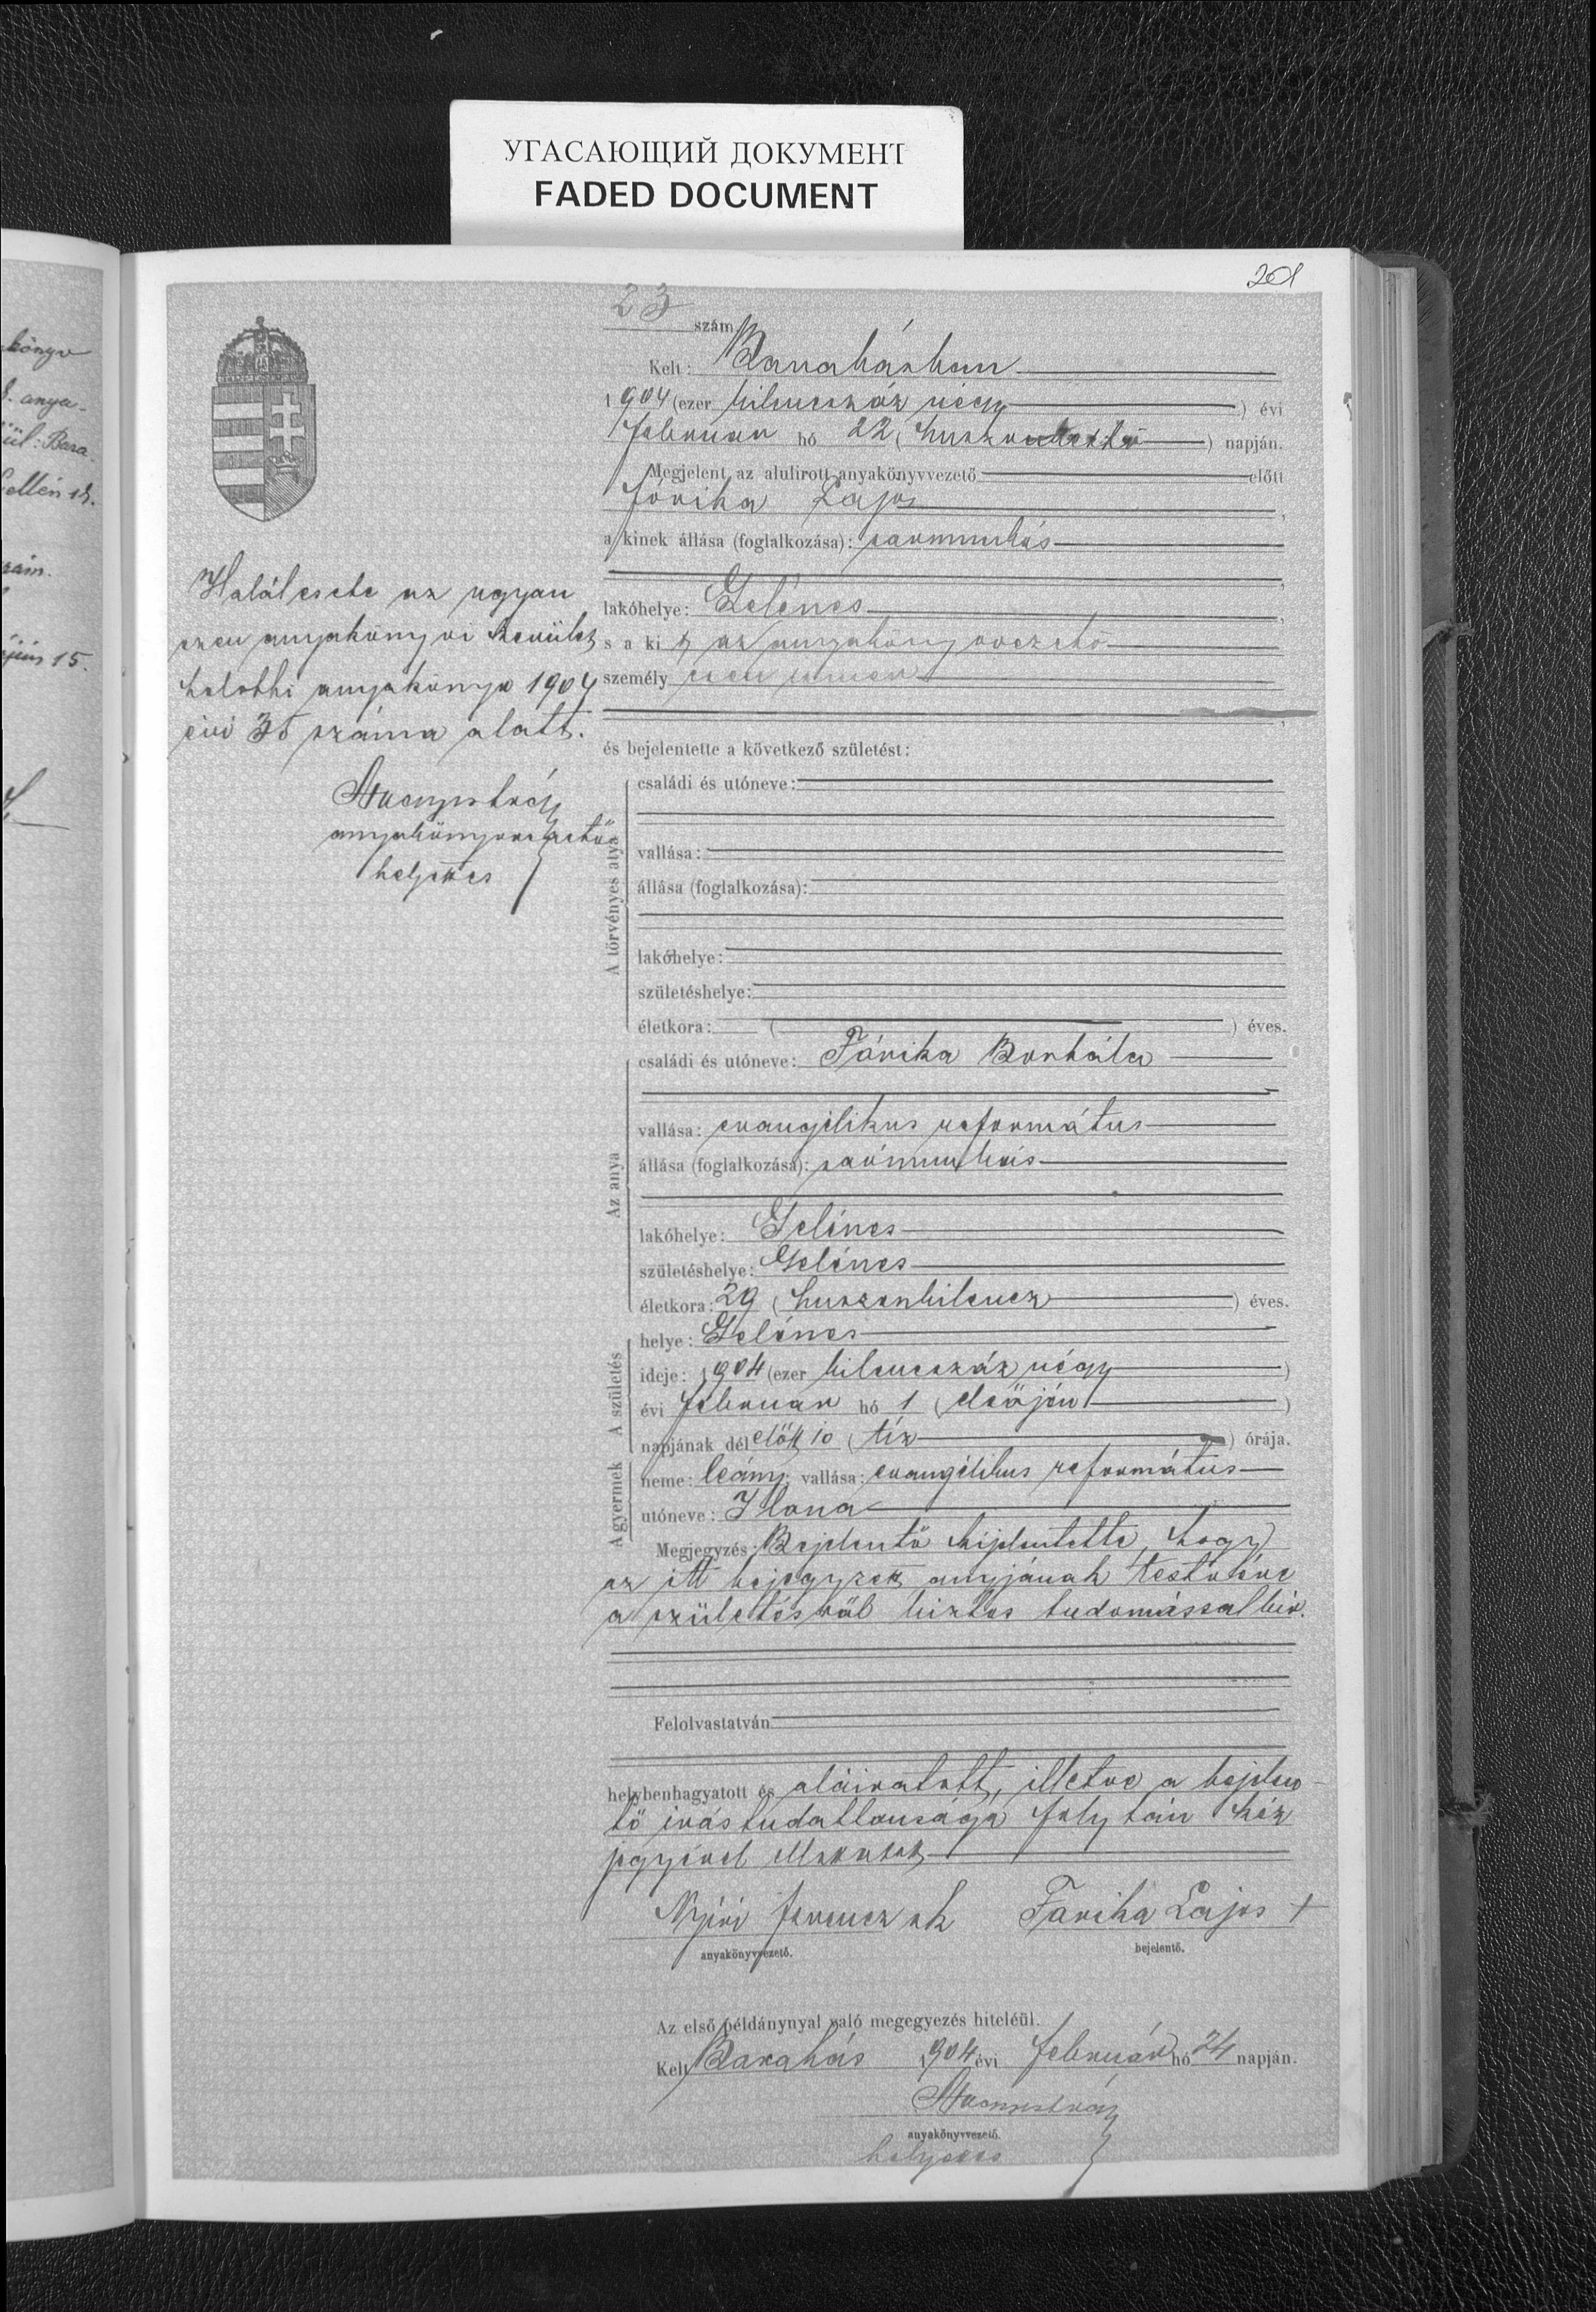 УГАСАЮЩИЙ ДОКУМЕНТ
FADED DOCUMENT
201
könyv
anya-
ül: Bara-
szám.
15.
23 szám.
Kelt: Barabásban
1904 (ezer kilencszáz négy) évi
Február hó 22 (huszonkettő) napján.
Megjelent az alulirott anyakönyvvezető előtt
Fórika Lajos,
a kinek állása (foglalkozása): napszámos,
lakóhelye: Gelénes,
s a ki t az anyakönyvvezető
személyesen ismer,
és bejelentette a következő születést:
A törvényes atya
családi és utóneve:
vallása:
állása (foglalkozása):
lakóhelye:
születéshelye:
életkora: ( ) éves.
Az anya
családi és utóneve: Fórika Borbála
vallása: evangélikus református
állása (foglalkozása):
lakóhelye: Gelénes
születéshelye: Gelénes
életkora: 29 (huszonkilencz) éves.
A születés
helye: Gelénes
ideje: 1904 (ezer kilencszáz négy)
évi február hó 1 (elsőjén)
napjának dél előtt 10 (tíz) órája.
A gyermek
neme: leány; vallása: evangélikus református
utóneve: Ilona
Megjegyzés: Bejelentő kijelentette, hogy
az itt bejegyzett anyjának testvére
a születésről biztos tudomással bír.
Felolvastatván
helybenhagyatott és aláíratott, illetve a bejelen-
tő írástudatlansága folytán kéz
jegyével elláttatott
Nyíri Ferencz ak Farika Lajos +
anyakönyvvezető. bejelentő.
Az első példánynyal való megegyezés hiteléül.
Kelt Barabás 1904 évi február hó 24 napján.
anyakönyvvezető.
helyettes
Halálesete az ugyan
ezen anyakönyvi kerület
halotti anyakönyv 1904
évi 35 száma alatt.
anyakönyvvezető
helyettes